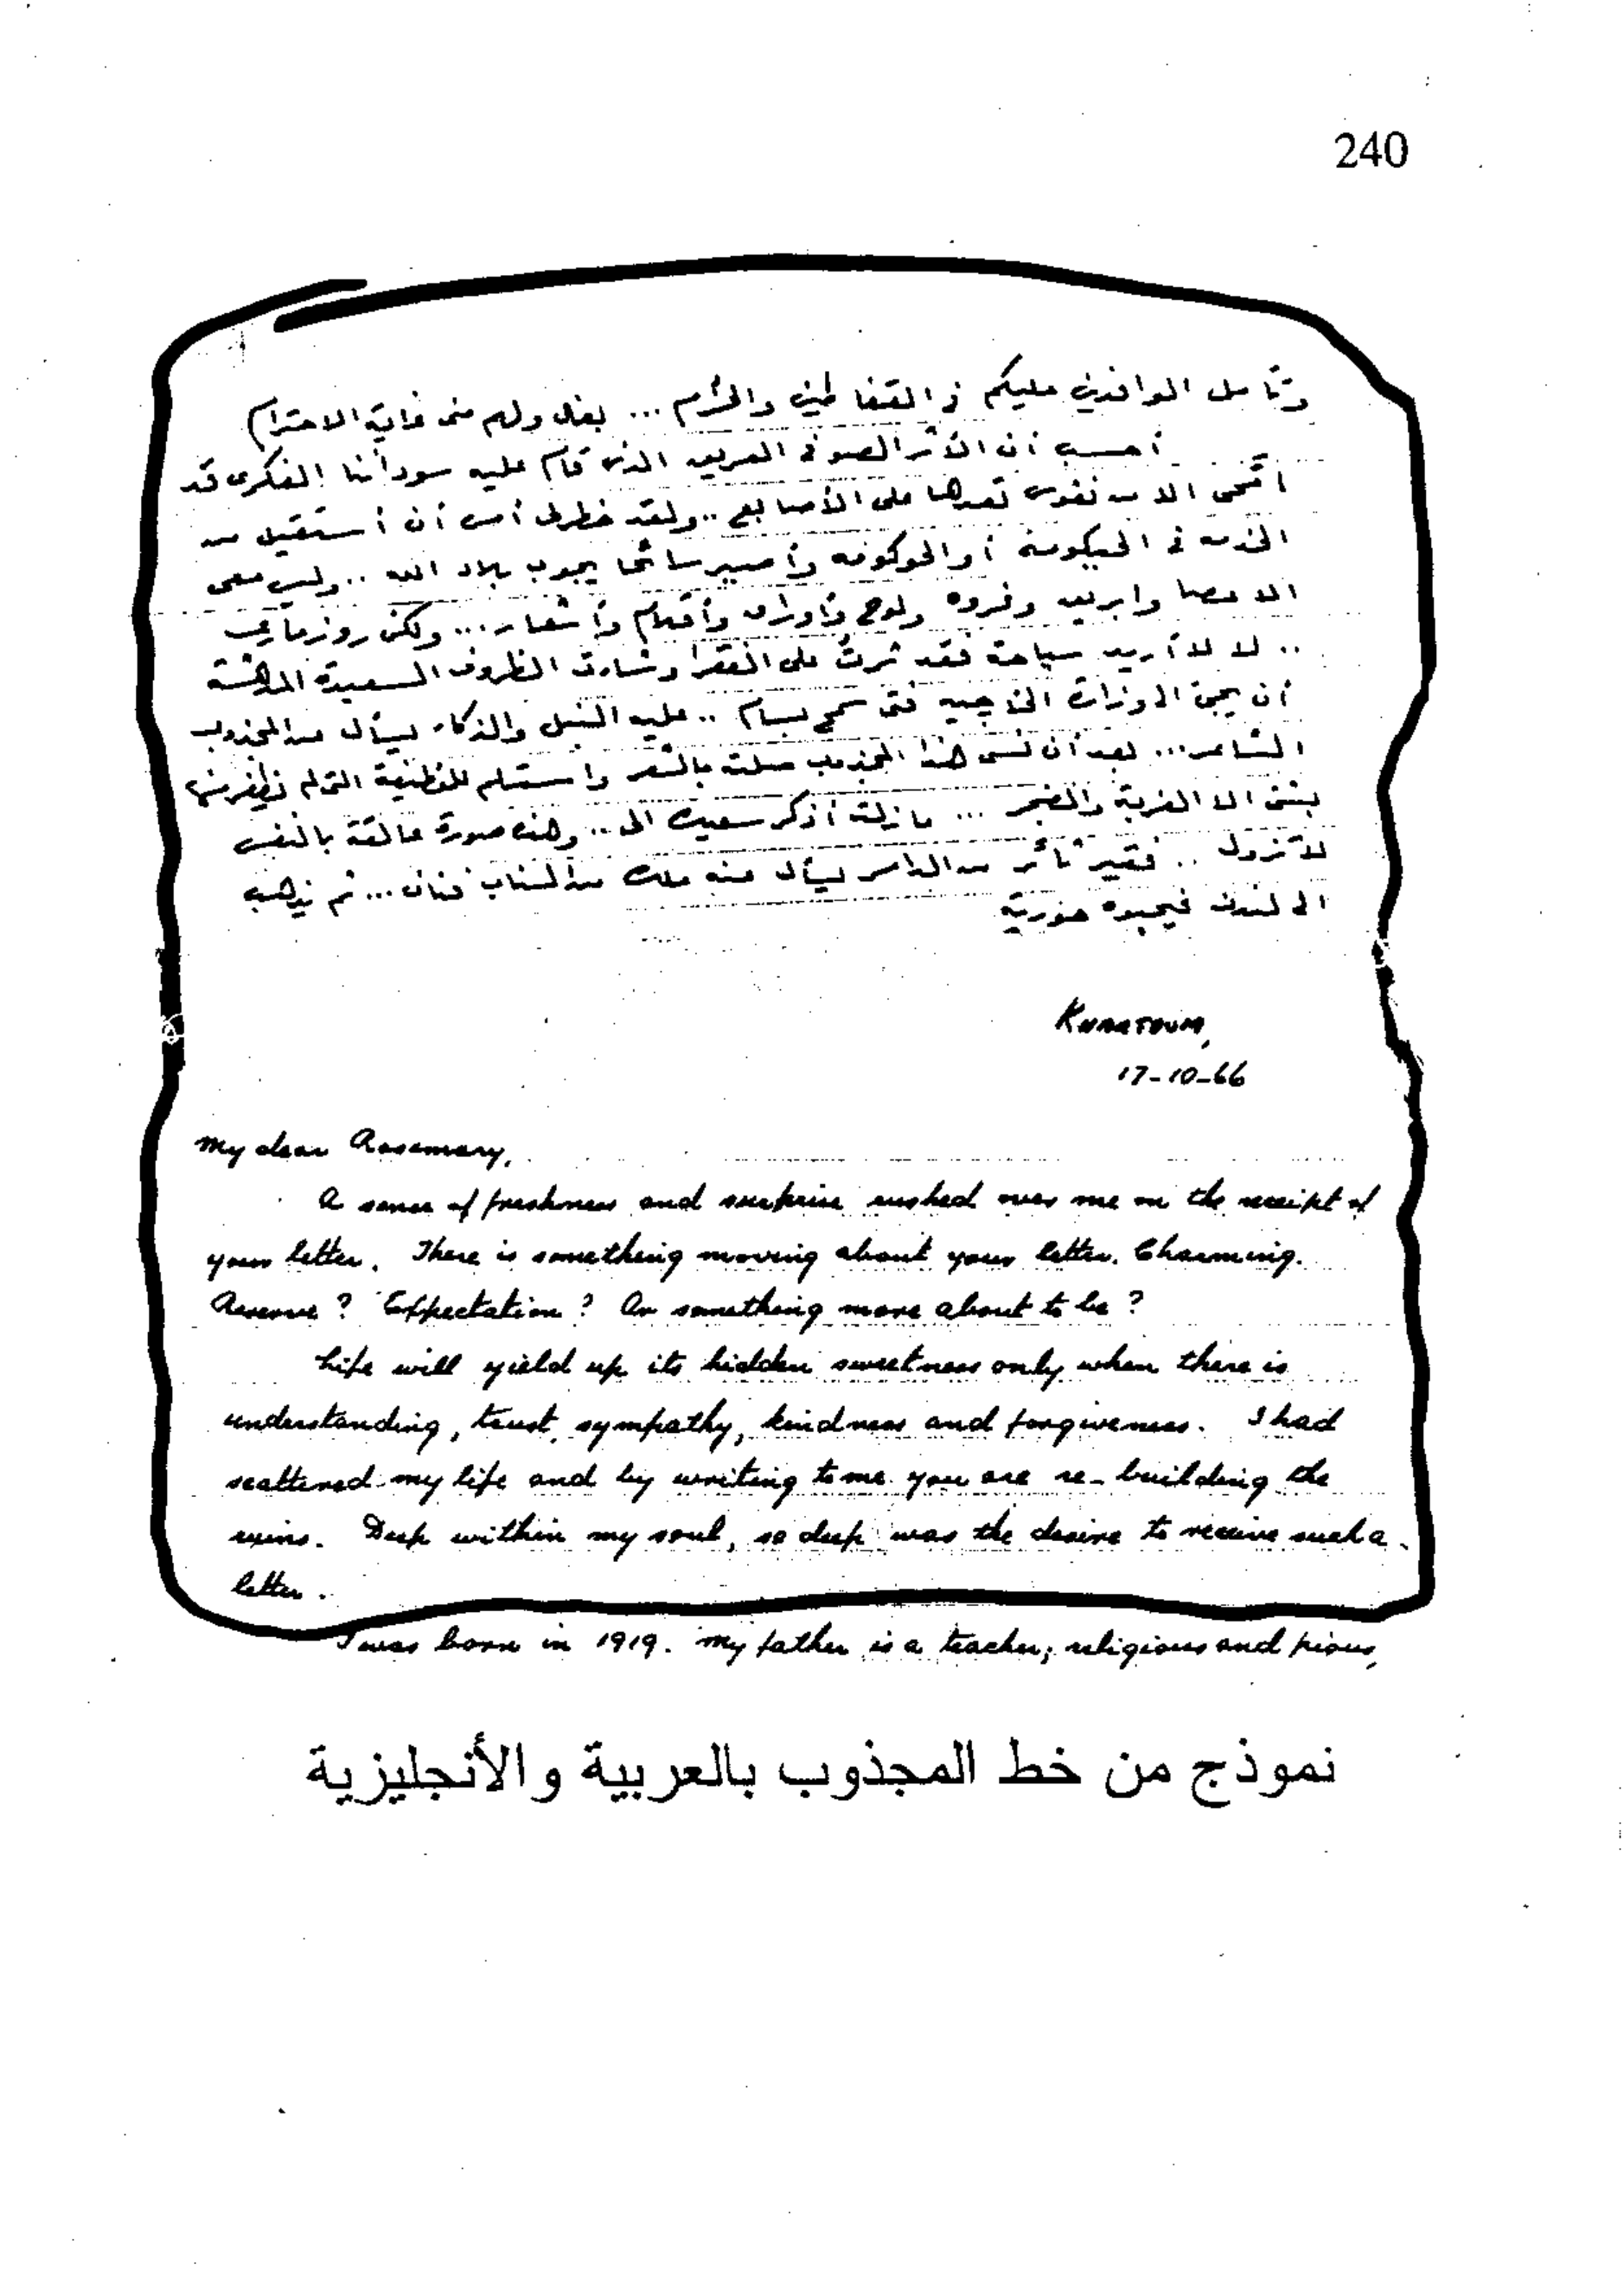 240
وتأمل الوافدين عليكم في القفاطين والحُرُم ... بغال ولهم منى غاية الاحترام
أحسب أن الأثر الصوفي العريق الذي قام عليه سودأننا الفكرى قد
أمحى الا من نفوس تعدها على الأصابع .. ولقد خطر لى أمس أن أستقيل من
الخدمة في الحكومة أو الحوكونه وأصير سائحا يجوب بلاد الله .. وليس معى
الا عصا وابريق وفروه ولوح وأوراق وأقلام وأشعار ... ولكن روزمارى
.. لا لا أريد سياحة فقد ثرت على الفقرا وشاءت الظروف السعيدة المدهشة
أن يجئ الى وزارة الخارجيه فتى سمح بسام .. عليه النبل والذكاء ليسأل عن المجذوب
الشاعر ... بعد أن نسى هذا المجذوب صلته بالشعر واستسلم للقطيعة التى لم نظفر منها
بشئ الا الغربة والضجر ... مازلت أذكر سعيك الى .. وهذه صورة عالقة بالنفس
لا تزول .. فقير ثائر من الدامر ليسأل عنه ملك من السناب فنان ... ثم يذهب
الى لندن فيجيبوه حورية
KHARTOUM,
17-10-66
My dear Rosemary,
A sense of freshness and surprise rushed over me on the receipt of
your letter. There is something moving about your letter. Charming.
Reserve? Expectation? Or something more about to be?
Life will yield up its hidden sweetness only when there is
understanding, trust, sympathy, kindness and forgiveness. I had
scattered my life and by writing to me you are re-building the
ruins. Deep within my soul, so deep was the desire to receive such a
letter.
I was born in 1919. My father is a teacher; religious and pious,
نموذج من خط المجذوب بالعربية والأنجليزية